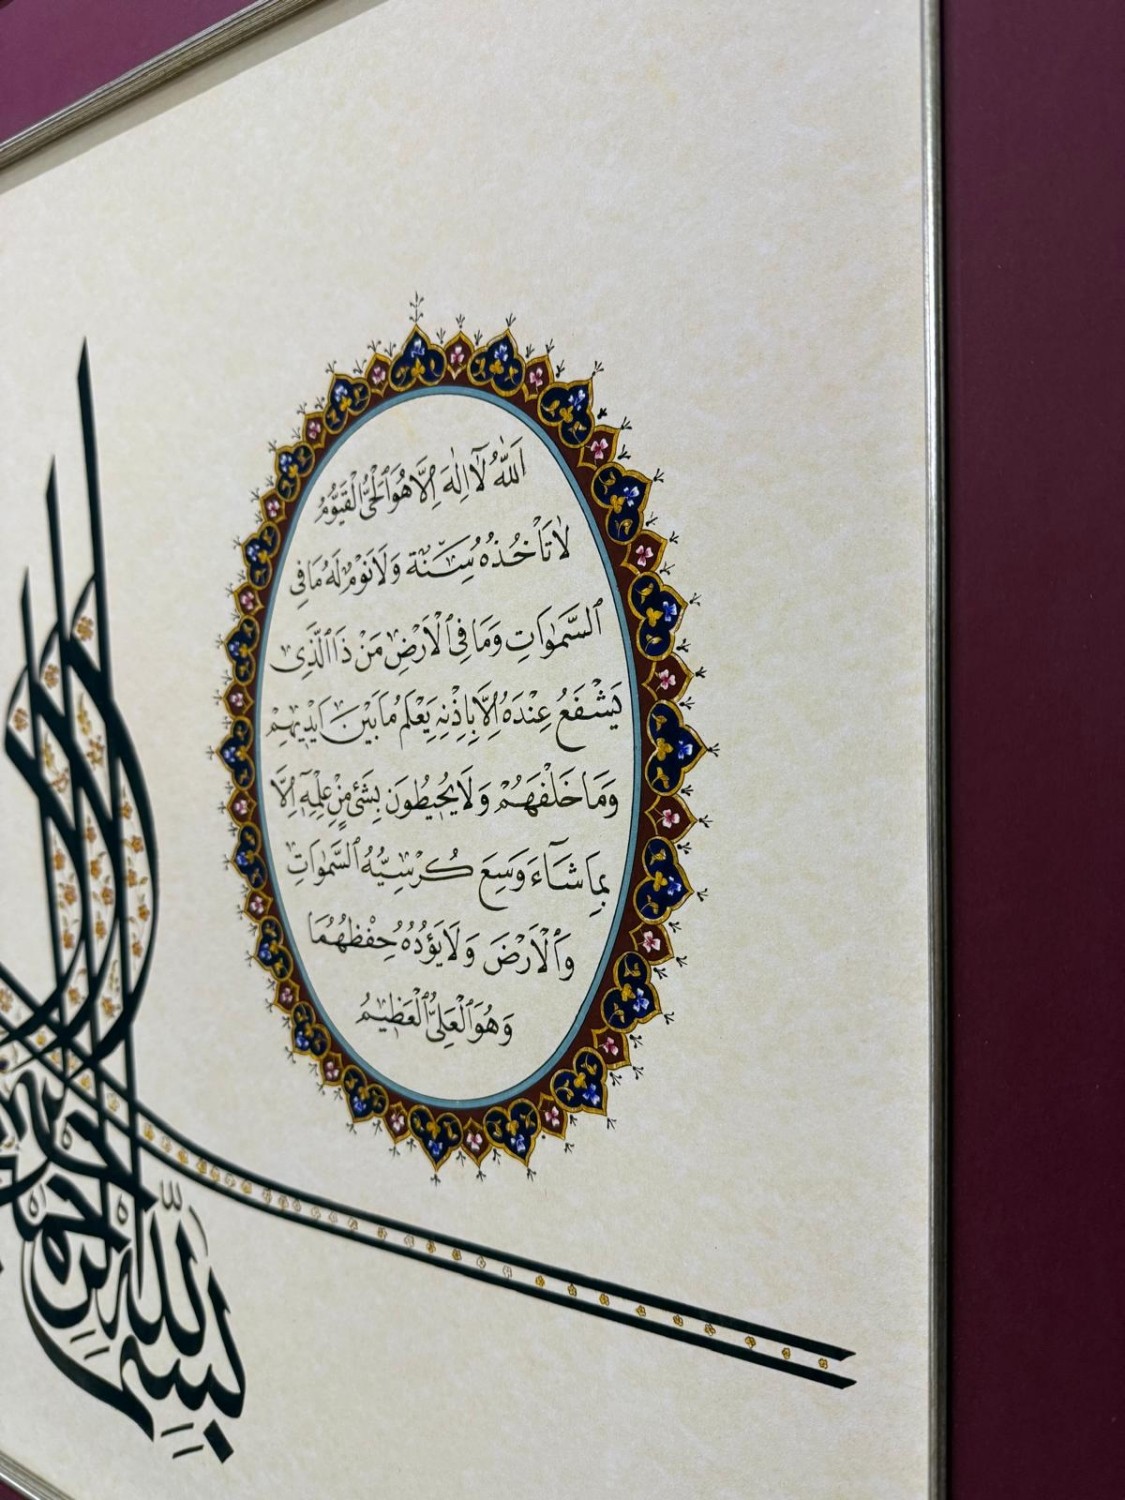 اَللّٰهُ لَٓا اِلٰهَ اِلَّا هُوَ اَلْحَىُّ الْقَيُّومُ
لَا تَأْخُذُهُ سِنَةٌ وَلَا نَوْمٌ لَهُ مَا فِى
السَّمٰوَاتِ وَمَا فِى الْاَرْضِ مَنْ ذَا الَّذٖى
يَشْفَعُ عِنْدَهُ اِلَّا بِاِذْنِهٖ يَعْلَمُ مَا بَيْنَ اَيْدٖيهِمْ
وَمَا خَلْفَهُمْ وَلَا يُحٖيطُونَ بِشَیْءٍ مِنْ عِلْمِهٖٓ اِلَّا
بِمَا شَٓاءَ وَسِعَ كُرْسِيُّهُ السَّمٰوَاتِ
وَالْاَرْضَ وَلَا يَؤُدُهُ حِفْظُهُمَا
وَهُوَ الْعَلِىُّ الْعَظٖيمُ
بِسْمِ اللّٰهِ الرَّحْمٰنِ